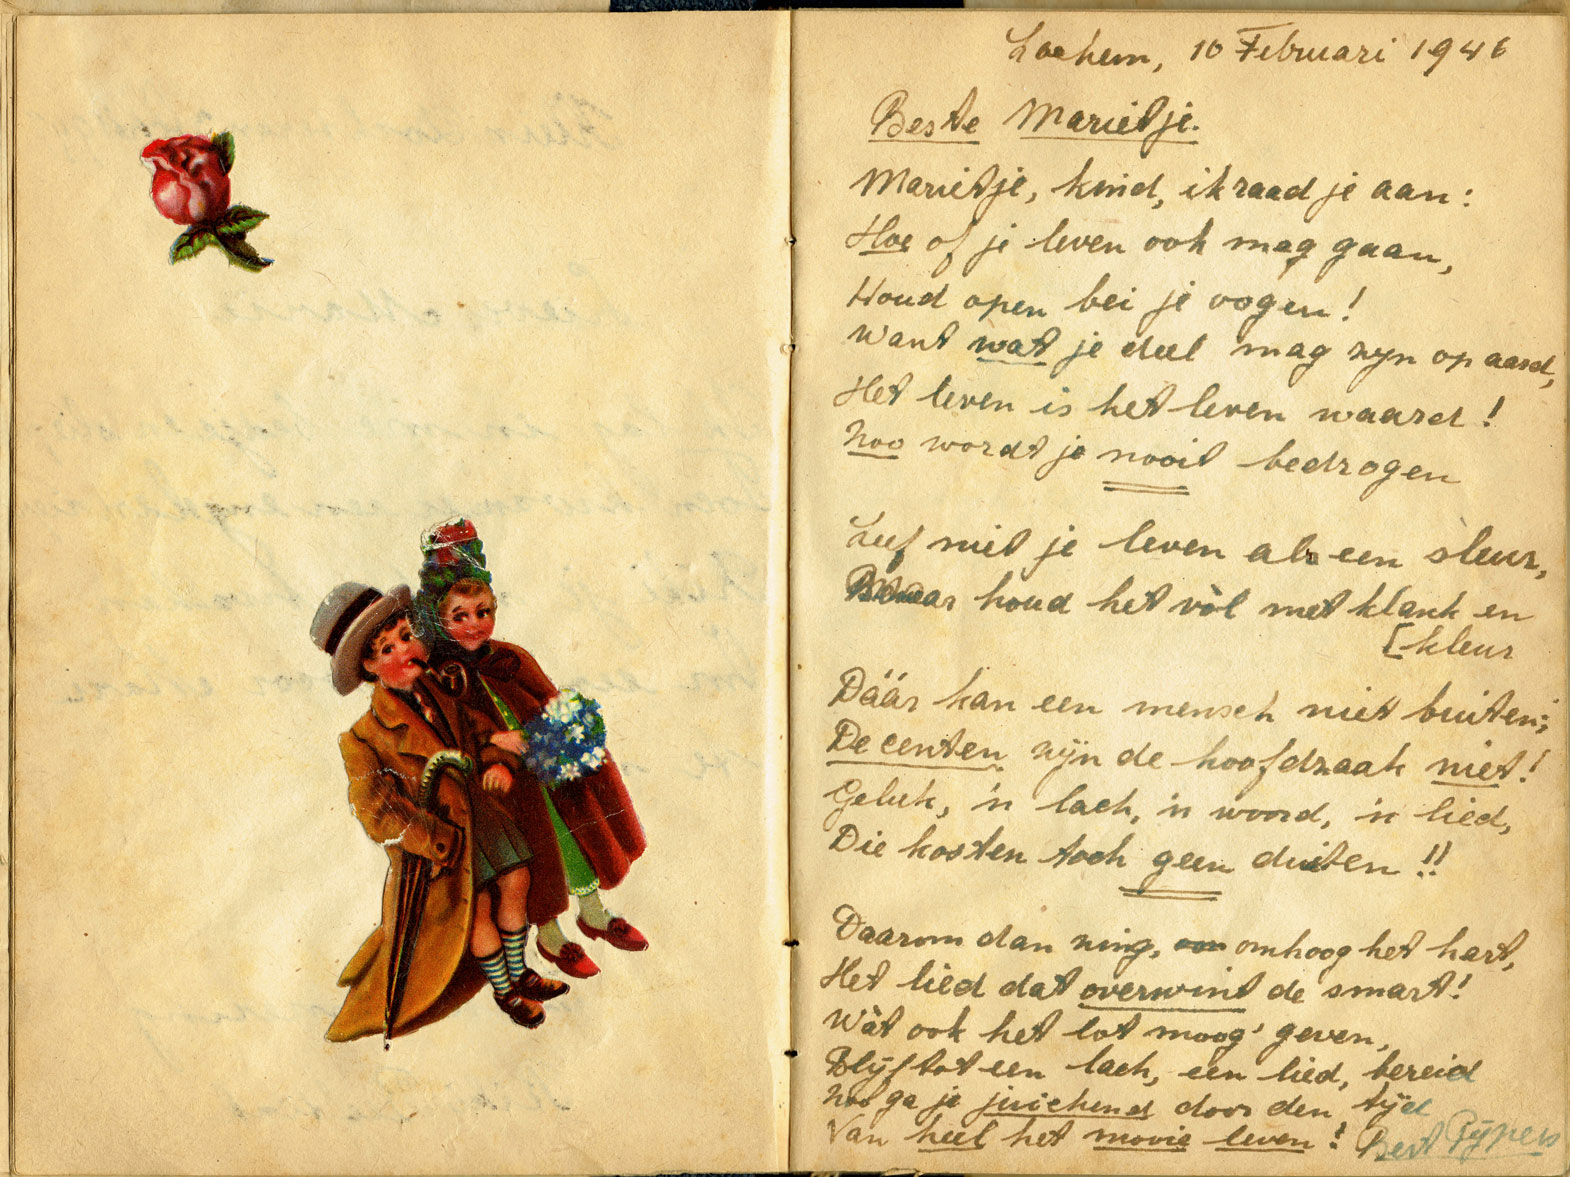 Lochem, 10 Februari 1946
Beste Marietje.
Marietje, kind, ik raad je aan:
Hoe of je leven ook mag gaan,
Houd open bei je oogen!
Want wat je deel mag zijn op aard,
Het leven is het leven waard!
Zoo wordt je nooit bedrogen
Leef niet je leven als een sleur,
Maar houd het vòl met klank en
[kleur
Dáár kan een mensch niet buiten;
De centen zijn de hoofdzaak niet!
Geluk, 'n lach, 'n woord, 'n lied,
Die kosten toch geen duiten!!
Daarom dan zing, omhoog het hart,
Het lied dat overwint de smart!
Wàt ook het lot moog' geven,
Blijf tot een lach, een lied, bereid
Zoo ga je juichend door den tijd
Van heel het mooie leven! Bert Pijpers